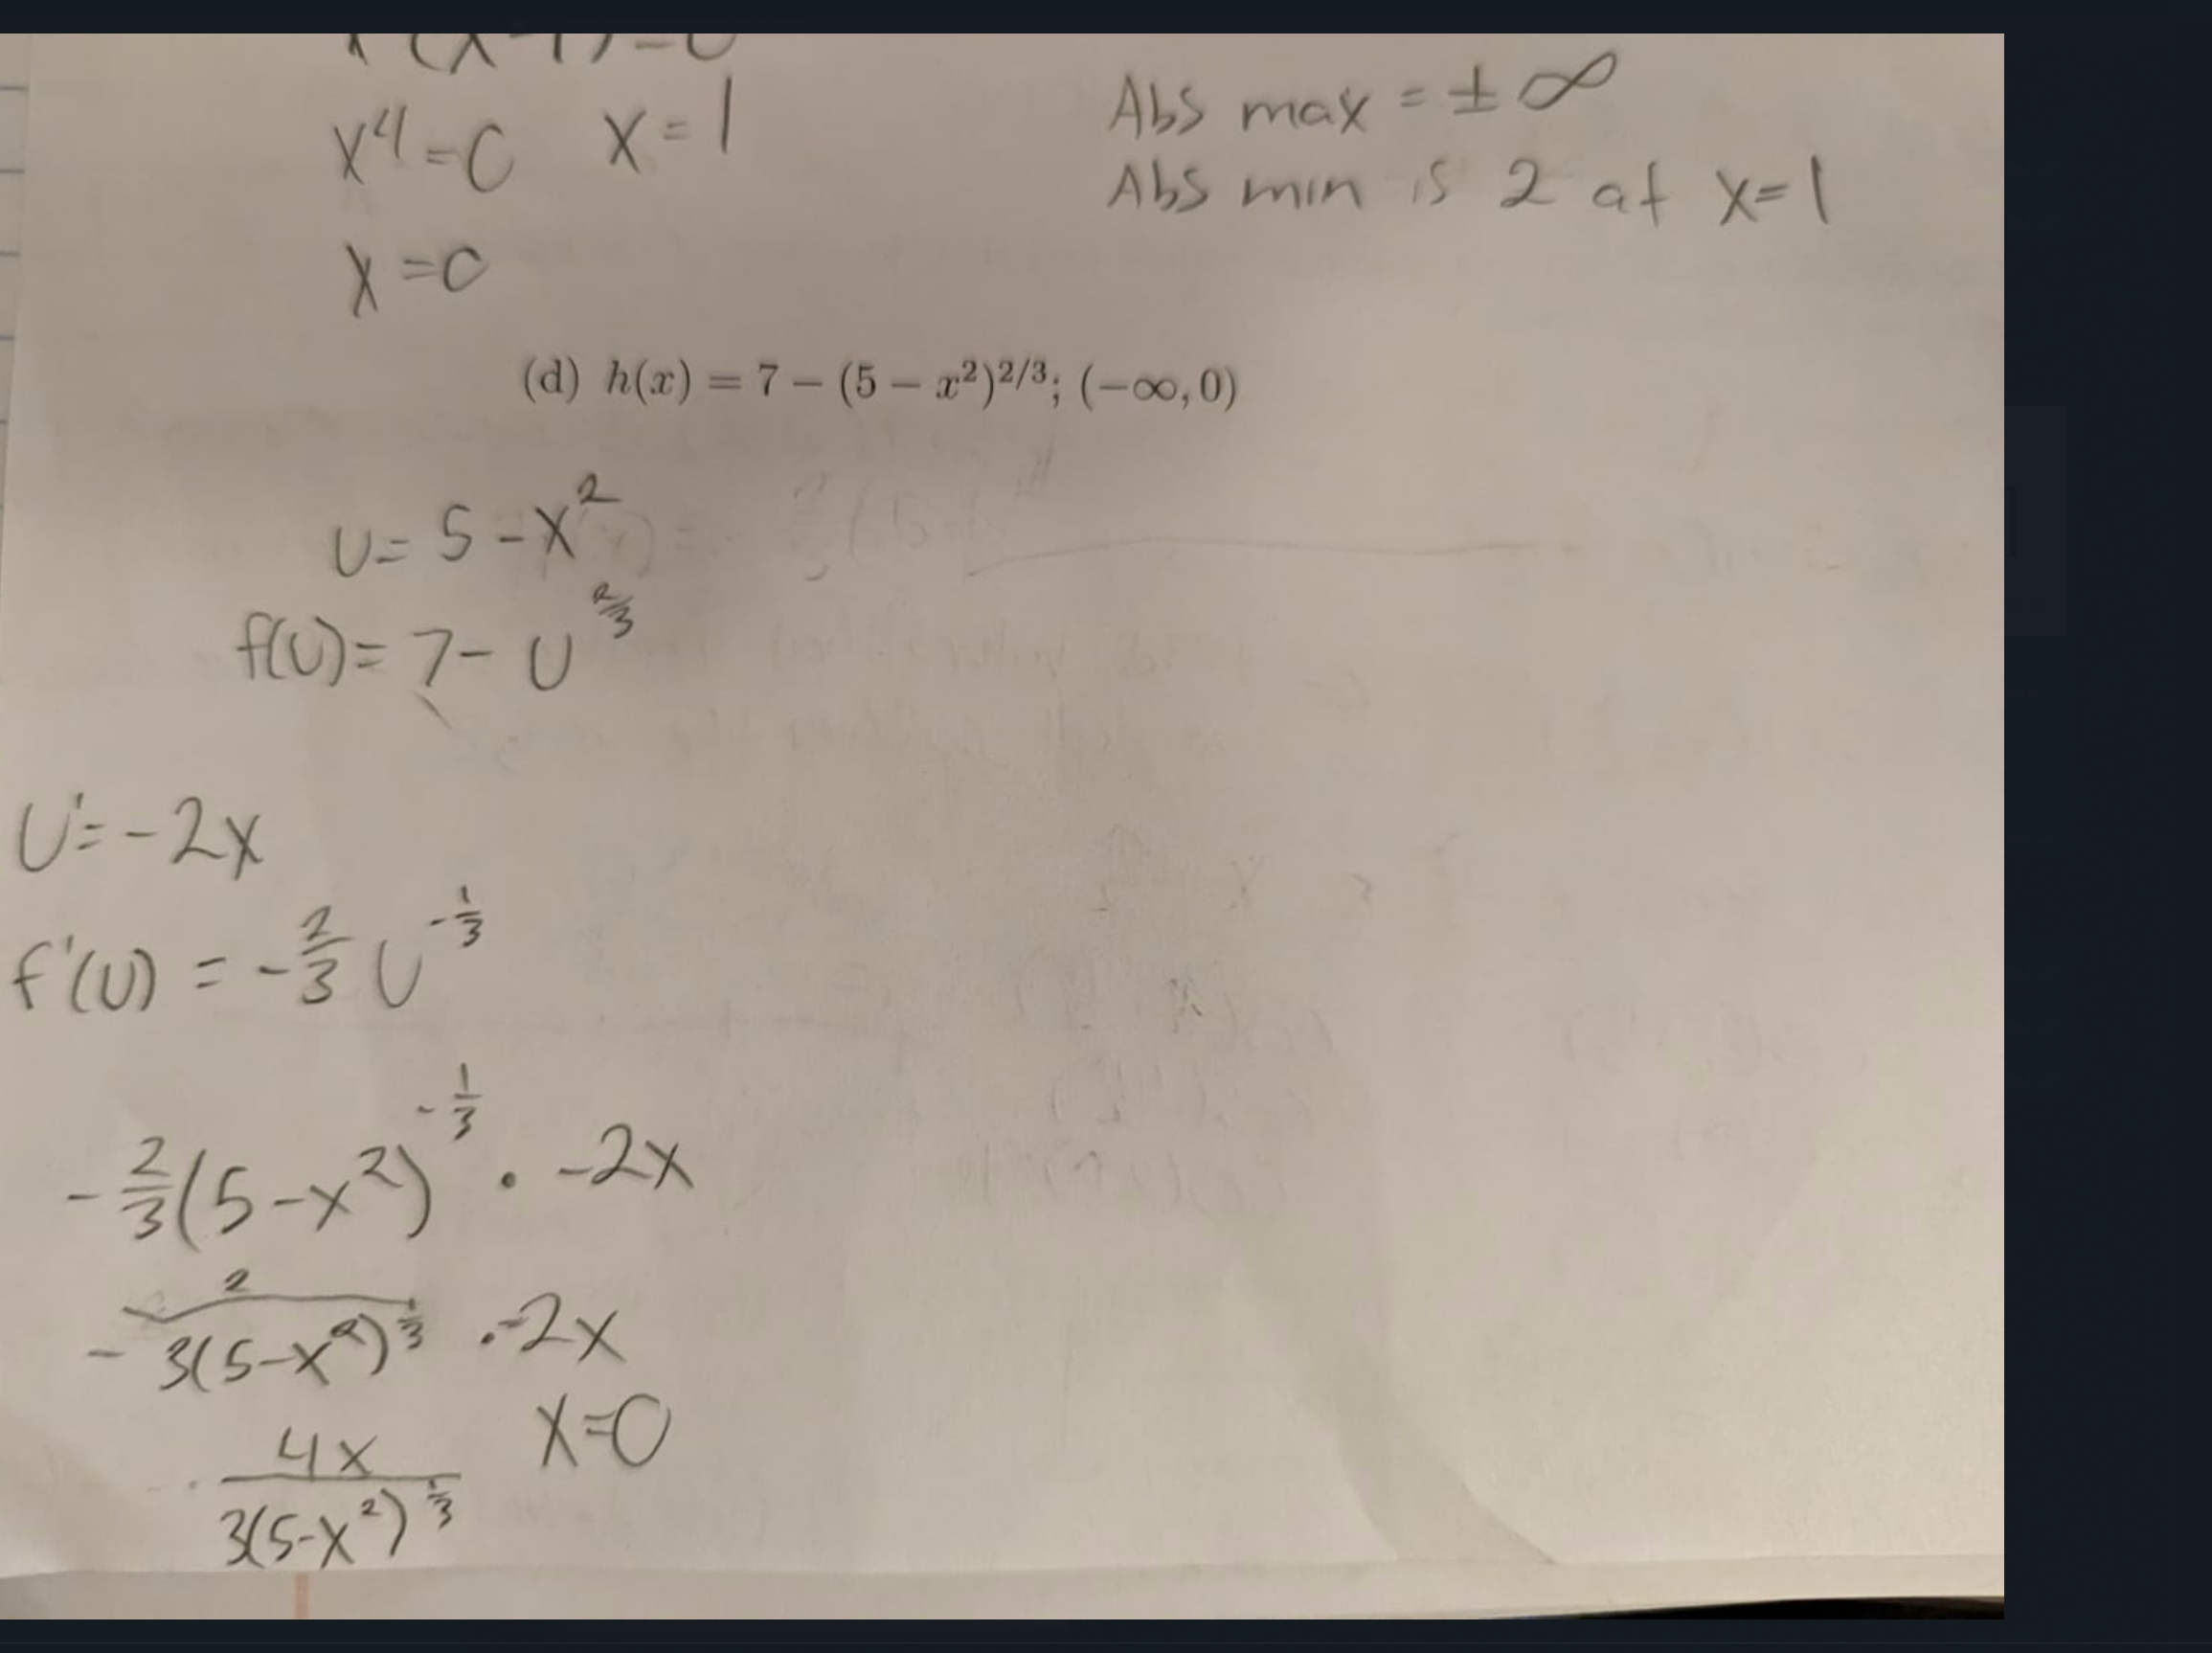 x⁴=0 x=1
x=0
Abs max = ±∞
Abs min is 2 at x=1
(d) h(x) = 7 − (5 − x²)^2/3; (−∞, 0)
U= 5-x²
f(U)= 7- U^2/3
U'= -2x
f'(U) = -2/3 U^-1/3
-2/3(5-x²)^-1/3 · -2x
-2/3(5-x²)^1/3 ·-2x
4x/3(5-x²)^1/3 x=0